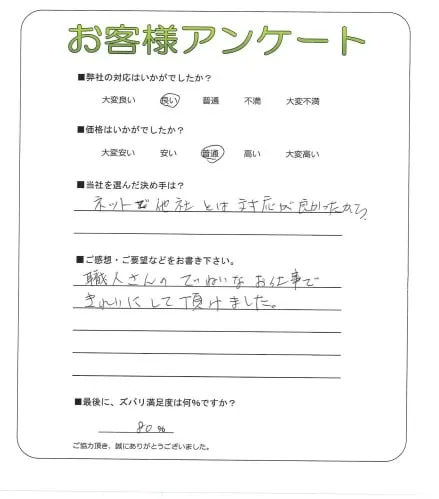 お客様アンケート
■弊社の対応はいかがでしたか？
大変良い 良い 普通 不満 大変不満
■価格はいかがでしたか？
大変安い 安い 普通 高い 大変高い
■当社を選んだ決め手は？
ネットで他社とは対応が良かったから
■ご感想・ご要望などをお書き下さい。
職人さんのていねいなお仕事で
きれいにして頂けました。
■最後に、ズバリ満足度は何％ですか？
80 ％
ご協力頂き、誠にありがとうございました。